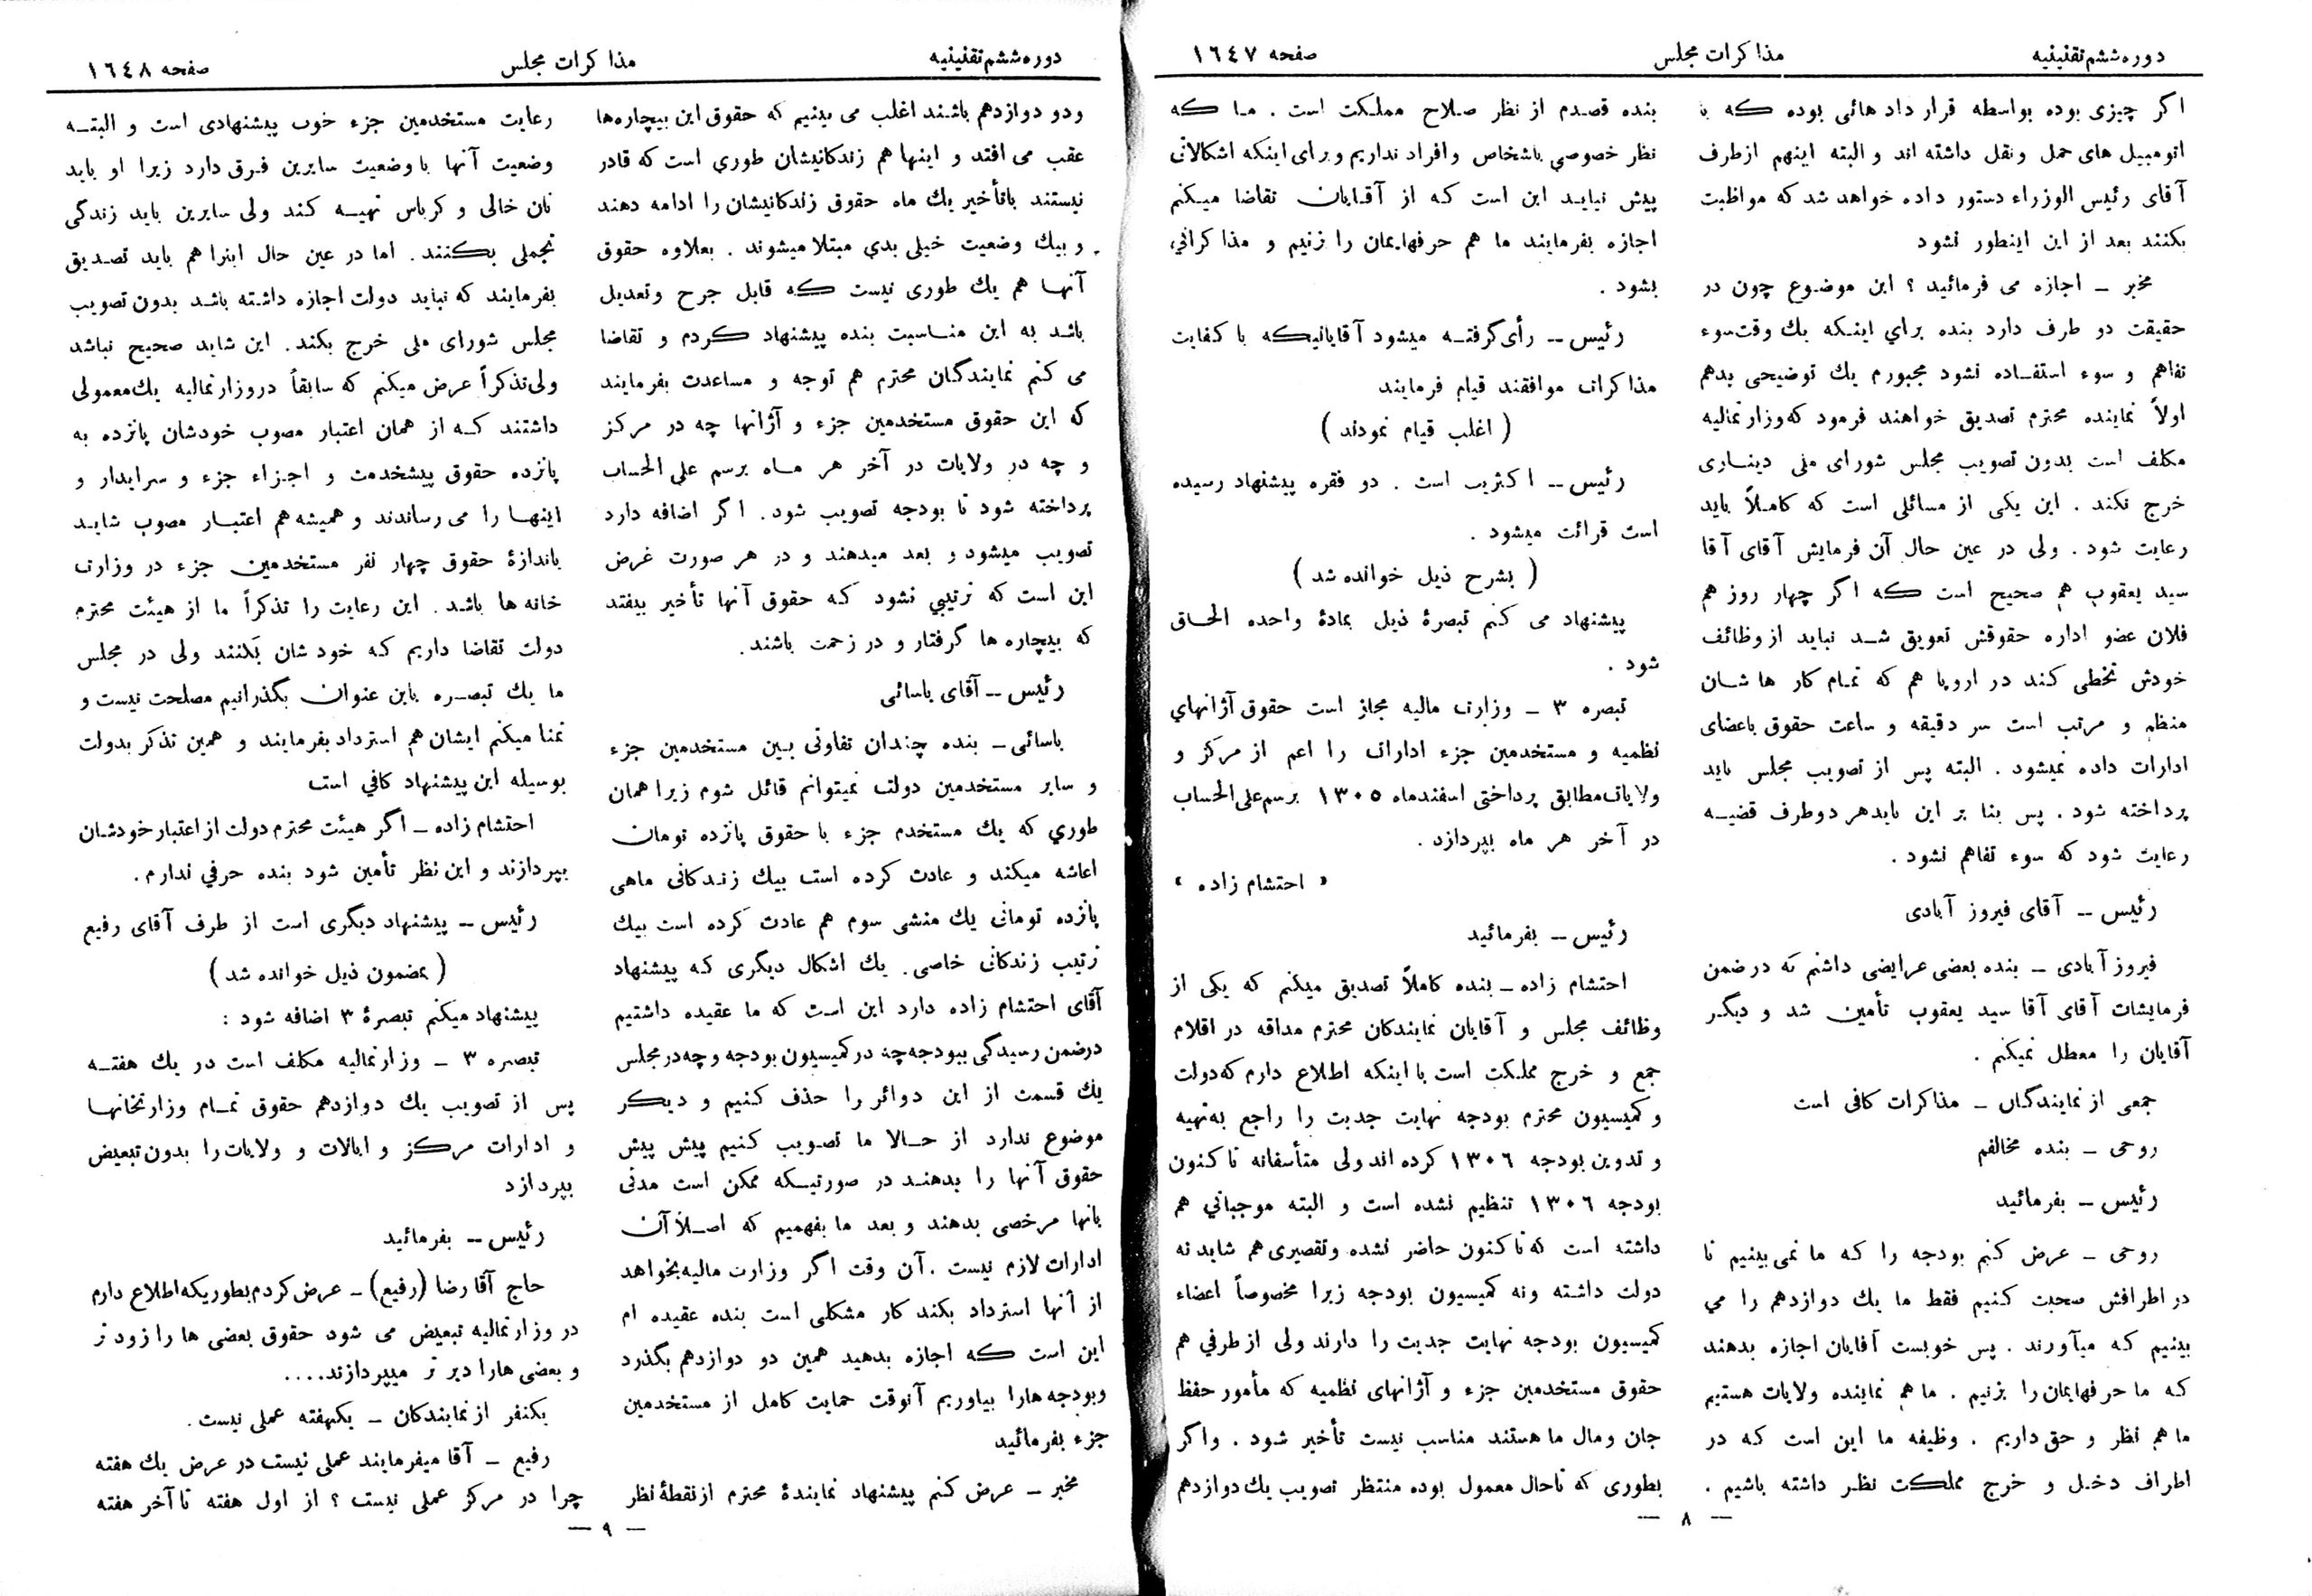 دوره ششم تقنینیه
مذاکرات مجلس
صفحه ۱٦٤۷
اگر چیزی بوده بواسطه قرار داد هائی بوده که با
اتومبیل های حمل ونقل داشته اند و البته اینهم ازطرف
آقای رئیس الوزراء دستور داده خواهد شد که مواظبت
بکنند بعد از این اینطور نشود
مخبر ــ اجازه می فرمائید ؟ این موضوع چون در
حقیقت دو طرف دارد بنده برای اینکه یك وقت سوء
تفاهم و سوء استفاده نشود مجبورم یك توضیحی بدهم
اولاً نماینده محترم تصدیق خواهند فرمود که وزارتمالیه
مکلف است بدون تصویب مجلس شورای ملی دیناری
خرج نکند . این یکی از مسائلی است که کاملاً باید
رعایت شود . ولی در عین حال آن فرمایش آقای آقا
سید یعقوب هم صحیح است که اگر چهار روز هم
فلان عضو اداره حقوقش تعویق شد نباید از وظائف
خودش تخطی کند در اروپا هم که تمام کار ها شان
منظم و مرتب است سر دقیقه و ساعت حقوق باعضای
ادارات داده نمیشود . البته پس از تصویب مجلس باید
پرداخته شود . پس بنا بر این باید هر دو طرف قضیه
رعایت شود که سوء تفاهم نشود .
رئیس ــ آقای فیروز آبادی
فیروز آبادی ــ بنده بعضی عرایضی داشتم که در ضمن
فرمایشات آقای آقا سید یعقوب تأمین شد و دیگر
آقایان را معطل نمیکنم .
جمعی از نمایندگان ــ مذاکرات کافی است
روحی ــ بنده مخالفم
رئیس ــ بفرمائید
روحی ــ عرض کنم بودجه را که ما نمی بینیم تا
در اطرافش صحبت کنیم فقط ما یك دوازدهم را می
بینیم که میآورند . پس خوبست آقایان اجازه بدهند
که ما حرفهایمان را بزنیم . ما هم نماینده ولایات هستیم
ما هم نظر و حق داریم . وظیفه ما این است که در
اطراف دخل و خرج مملکت نظر داشته باشیم .
بنده قصدم از نظر صلاح مملکت است . ما که
نظر خصوصی باشخاص وافراد نداریم و برای اینکه اشکالاتی
پیش نیاید این است که از آقایان تقاضا میکنم
اجازه بفرمایند ما هم حرفهایمان را زنیم و مذاکراتی
بشود .
رئیس ــ رأی گرفته میشود آقایانیکه با کفایت
مذاکرات موافقند قیام فرمایند
( اغلب قیام نمودند )
رئیس ــ اکثریت است . دو فقره پیشنهاد رسیده
است قرائت میشود .
( بشرح ذیل خوانده شد )
پیشنهاد می کنم تبصرهٔ ذیل بمادهٔ واحده الحاق
شود .
تبصره ۳ ــ وزارت مالیه مجاز است حقوق آژانهای
نظمیه و مستخدمین جزء ادارات را اعم از مرکز و
ولایات مطابق پرداختی اسفندماه ۱۳۰۵ برسم علی الحساب
در آخر هر ماه بپردازد .
« احتشام زاده »
رئیس ــ بفرمائید
احتشام زاده ــ بنده کاملاً تصدیق میکنم که یکی از
وظائف مجلس و آقایان نمایندکان محترم مداقه در اقلام
جمع و خرج مملکت است با اینکه اطلاع دارم که دولت
و کمیسیون محترم بودجه نهایت جدیت را راجع به تهیه
و تدوین بودجه ۱۳۰٦ کرده اند ولی متأسفانه تا کنون
بودجه ۱۳۰٦ تنظیم نشده است و البته موجباتی هم
داشته است که تا کنون حاضر نشده و تقصیری هم شاید نه
دولت داشته ونه کمیسیون بودجه زیرا مخصوصاً اعضاء
کمیسیون بودجه نهایت جدیت را دارند ولی از طرفی هم
حقوق مستخدمین جزء و آژانهای نظمیه که مأمور حفظ
جان ومال ما هستند مناسب نیست تأخیر شود . واگر
بطوری که تاحال معمول بوده منتظر تصویب یك دوازدهم
— ۸ —
دوره ششم تقنینیه
مذاکرات مجلس
صفحه ۱٦٤۸
ودو دوازدهم باشند اغلب می بینیم که حقوق این بیچاره ها
عقب می افتد و اینها هم زندکانیشان طوری است که قادر
نیستند باتأخیر یك ماه حقوق زندکانیشان را ادامه دهند
و بیك وضعیت خیلی بدی مبتلا میشوند . بعلاوه حقوق
آنها هم یك طوری نیست که قابل جرح وتعدیل
باشد به این مناسبت بنده پیشنهاد کردم و تقاضا
می کنم نمایندگان محترم هم توجه و مساعدت بفرمایند
که این حقوق مستخدمین جزء و آژانها چه در مرکز
و چه در ولایات در آخر هر ماه برسم علی الحساب
پرداخته شود تا بودجه تصویب شود . اگر اضافه دارد
تصویب میشود و بعد میدهند و در هر صورت غرض
این است که ترتیبی نشود که حقوق آنها تأخیر بیفتد
که بیچاره ها گرفتار و در زحمت باشند .
رئیس ــ آقای یاسائی
یاسائی ــ بنده چندان تفاوتی بین مستخدمین جزء
و سایر مستخدمین دولت نمیتوانم قائل شوم زیرا همان
طوری که یك مستخدم جزء با حقوق پانزده تومان
اعاشه میکند و عادت کرده است بیك زندکانی ماهی
پانزده تومانی یك منشی سوم هم عادت کرده است بیك
ترتیب زندکانی خاصی . یك اشکال دیگری که پیشنهاد
آقای احتشام زاده دارد این است که ما عقیده داشتیم
درضمن رسیدگی ببودجه چه در کمیسیون بودجه و چه در مجلس
یك قسمت از این دوائر را حذف کنیم و دیگر
موضوع ندارد از حالا ما تصویب کنیم پیش پیش
حقوق آنها را بدهند در صورتیکه ممکن است مدتی
بآنها مرخصی بدهند و بعد ما بفهمیم که اصلاً آن
ادارات لازم نیست . آن وقت اگر وزارت مالیه بخواهد
از آنها استرداد بکند کار مشکلی است بنده عقیده ام
این است که اجازه بدهید همین دو دوازدهم بگذرد
وبودجه هارا بیاوریم آنوقت حمایت کامل از مستخدمین
جزء بفرمائید
مخبر ــ عرض کنم پیشنهاد نمایندهٔ محترم از نقطهٔ نظر
رعایت مستخدمین جزء خوب پیشنهادی است و البته
وضعیت آنها با وضعیت سایرین فرق دارد زیرا او باید
نان خالی و کرباس تهیه کند ولی سایرین باید زندگی
تجملی بکنند . اما در عین حال اینرا هم باید تصدیق
بفرمایند که نباید دولت اجازه داشته باشد بدون تصویب
مجلس شورای ملی خرج بکند . این شاید صحیح نباشد
ولی تذکراً عرض میکنم که سابقاً در وزارتمالیه یك معمولی
داشتند که از همان اعتبار مصوب خودشان پانزده به
پانزده حقوق پیشخدمت و اجزاء جزء و سرایدار و
اینها را می رساندند و همیشه هم اعتبار مصوب شاید
باندازهٔ حقوق چهار نفر مستخدمین جزء در وزارت
خانه ها باشد . این رعایت را تذکراً ما از هیئت محترم
دولت تقاضا داریم که خود شان بکنند ولی در مجلس
ما یك تبصره باین عنوان بگذرانیم مصلحت نیست و
تمنا میکنم ایشان هم استرداد بفرمایند و همین تذکر بدولت
بوسیله این پیشنهاد کافی است
احتشام زاده ــ اگر هیئت محترم دولت از اعتبار خودشان
بپردازند و این نظر تأمین شود بنده حرفی ندارم .
رئیس ــ پیشنهاد دیگری است از طرف آقای رفیع
( بمضمون ذیل خوانده شد )
پیشنهاد میکنم تبصرهٔ ۳ اضافه شود :
تبصره ۳ ــ وزارتمالیه مکلف است در یك هفته
پس از تصویب یك دوازدهم حقوق تمام وزارتخانها
و ادارات مرکز و ایالات و ولایات را بدون تبعیض
بپردازد
رئیس ــ بفرمائید
حاج آقا رضا (رفیع) ــ عرض کردم بطوریکه اطلاع دارم
در وزارتمالیه تبعیض می شود حقوق بعضی ها را زود تر
و بعضی هارا دیر تر میپردازند....
یکنفر از نمایندکان ــ یکهفته عملی نیست .
رفیع ــ آقا میفرمایند عملی نیست در عرض یك هفته
چرا در مرکز عملی نیست ؟ از اول هفته تا آخر هفته
— ۹ —